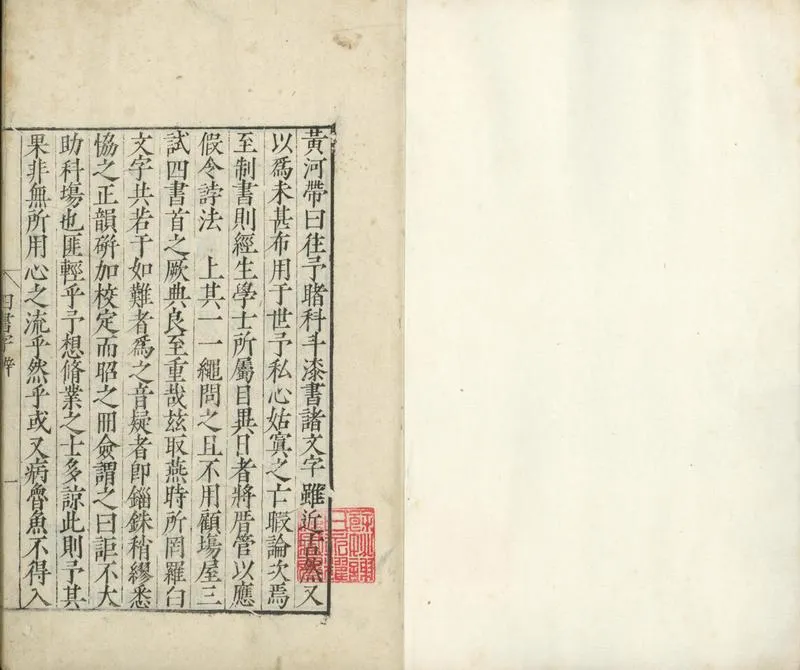 黃河帶曰往予睹科斗漆書諸文字雖近古然又
以爲未甚布用于世予私心姑寘之亡暇論次焉
至制書則經生學士所屬目異日者將厝管以應
假令誖法　上其一一繩問之且不用顧塲屋三
試四書首之厥典良至重哉玆取燕時所罔羅白
文字共若干如難者爲之音疑者卽錙銖稍繆悉
恊之正韻硏加校定而昭之冊僉謂之曰詎不大
助科塲也匪輕乎予想脩業之士多諒此則予其
果非無所用心之流乎然乎或又病魯魚不得入
四書字辨
一